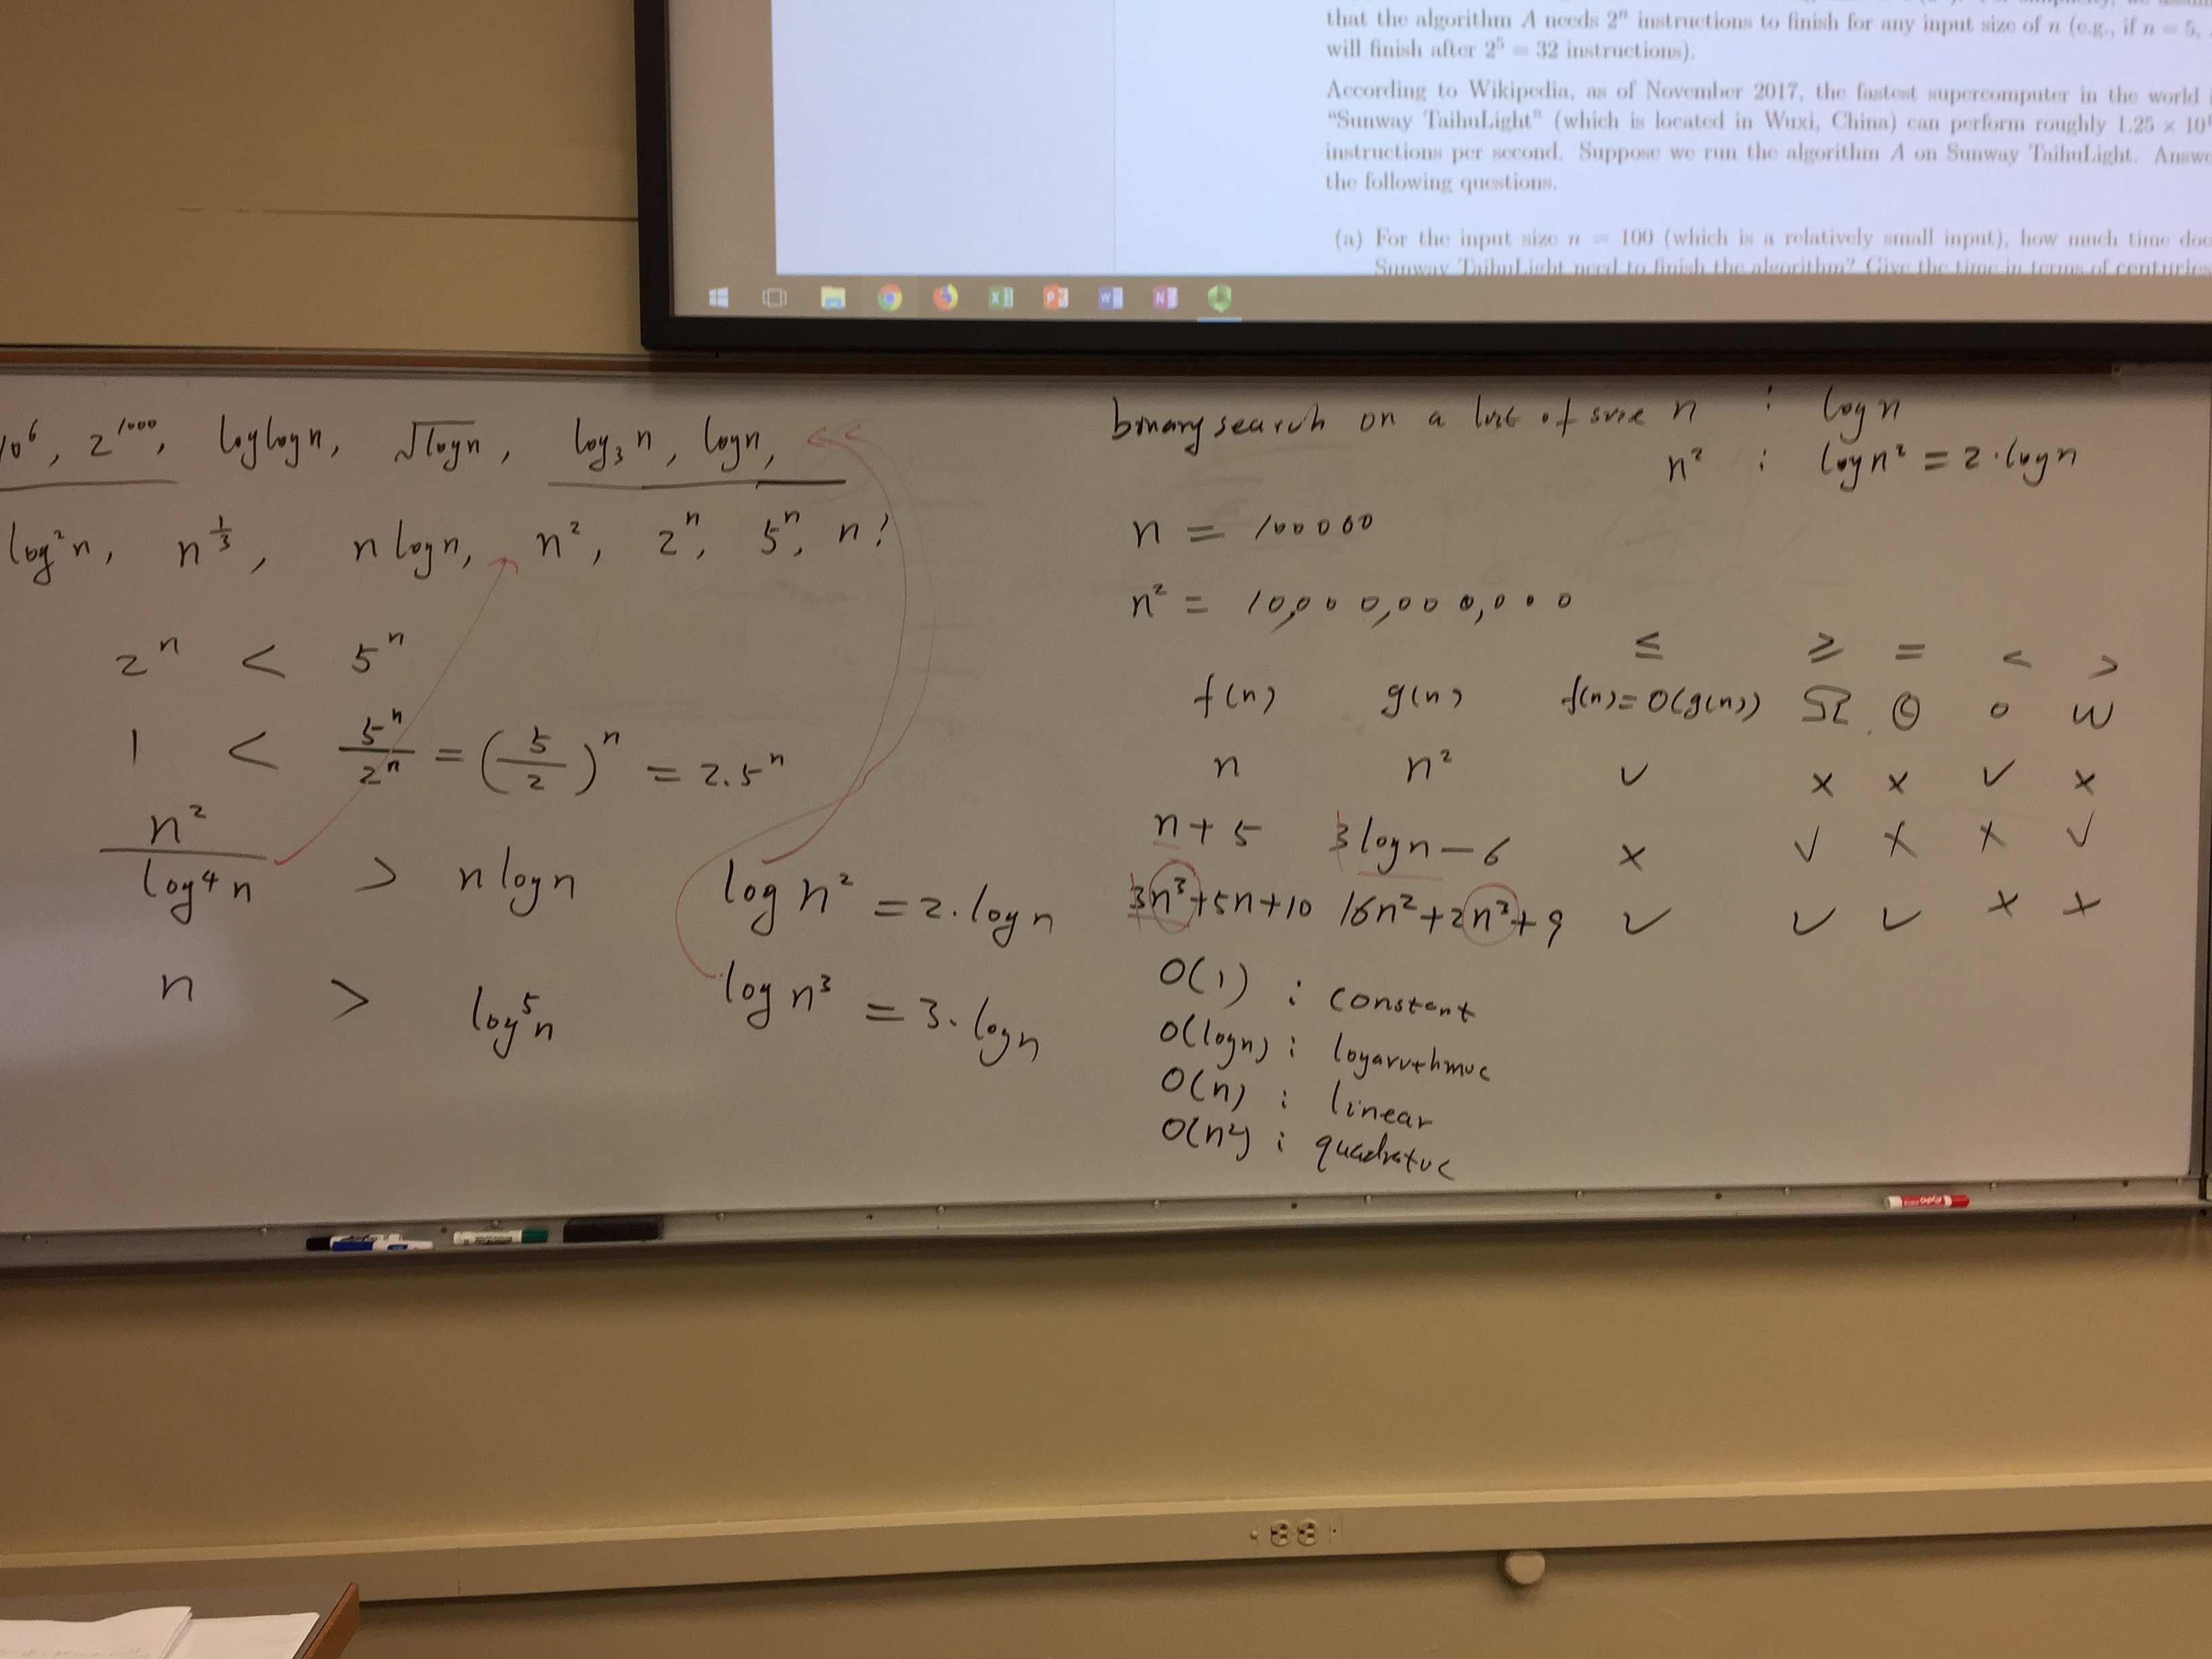 that the algorithm A needs 2ⁿ instructions to finish for any input size of n (e.g., if n = 5,
will finish after 2⁵ = 32 instructions).
According to Wikipedia, as of November 2017, the fastest supercomputer in the world
"Sunway TaihuLight" (which is located in Wuxi, China) can perform roughly 1.25 × 10
instructions per second. Suppose we run the algorithm A on Sunway TaihuLight. Answe
the following questions.
(a) For the input size n = 100 (which is a relatively small input), how much time doe
Sunway TaihuLight need to finish the algorithm? Give the time in terms of centuries
10⁶, 2¹⁰⁰⁰, loglogn, √logn, log₃ n, logn,
log²n, n^(1/3), nlogn, n², 2ⁿ, 5ⁿ, n!
2ⁿ < 5ⁿ
1 < 5ⁿ/2ⁿ = (5/2)ⁿ = 2.5ⁿ
n²/log⁴n > nlogn
n > log⁵n
log n² = 2·logn
log n³ = 3·logn
binary search on a list of size n : logn
n² : logn² = 2·logn
n = 100000
n² = 10,000,000,000
≤ ≥ = < >
f(n) g(n) f(n)=O(g(n)) Ω Θ o ω
n n² ✓ × × ✓ ×
n+5 3logn−6 × ✓ × × ✓
3n³+5n+10 16n²+2n³+9 ✓ ✓ ✓ × ×
O(1) : constant
O(logn) : logarithmic
O(n) : linear
O(n²) : quadratic